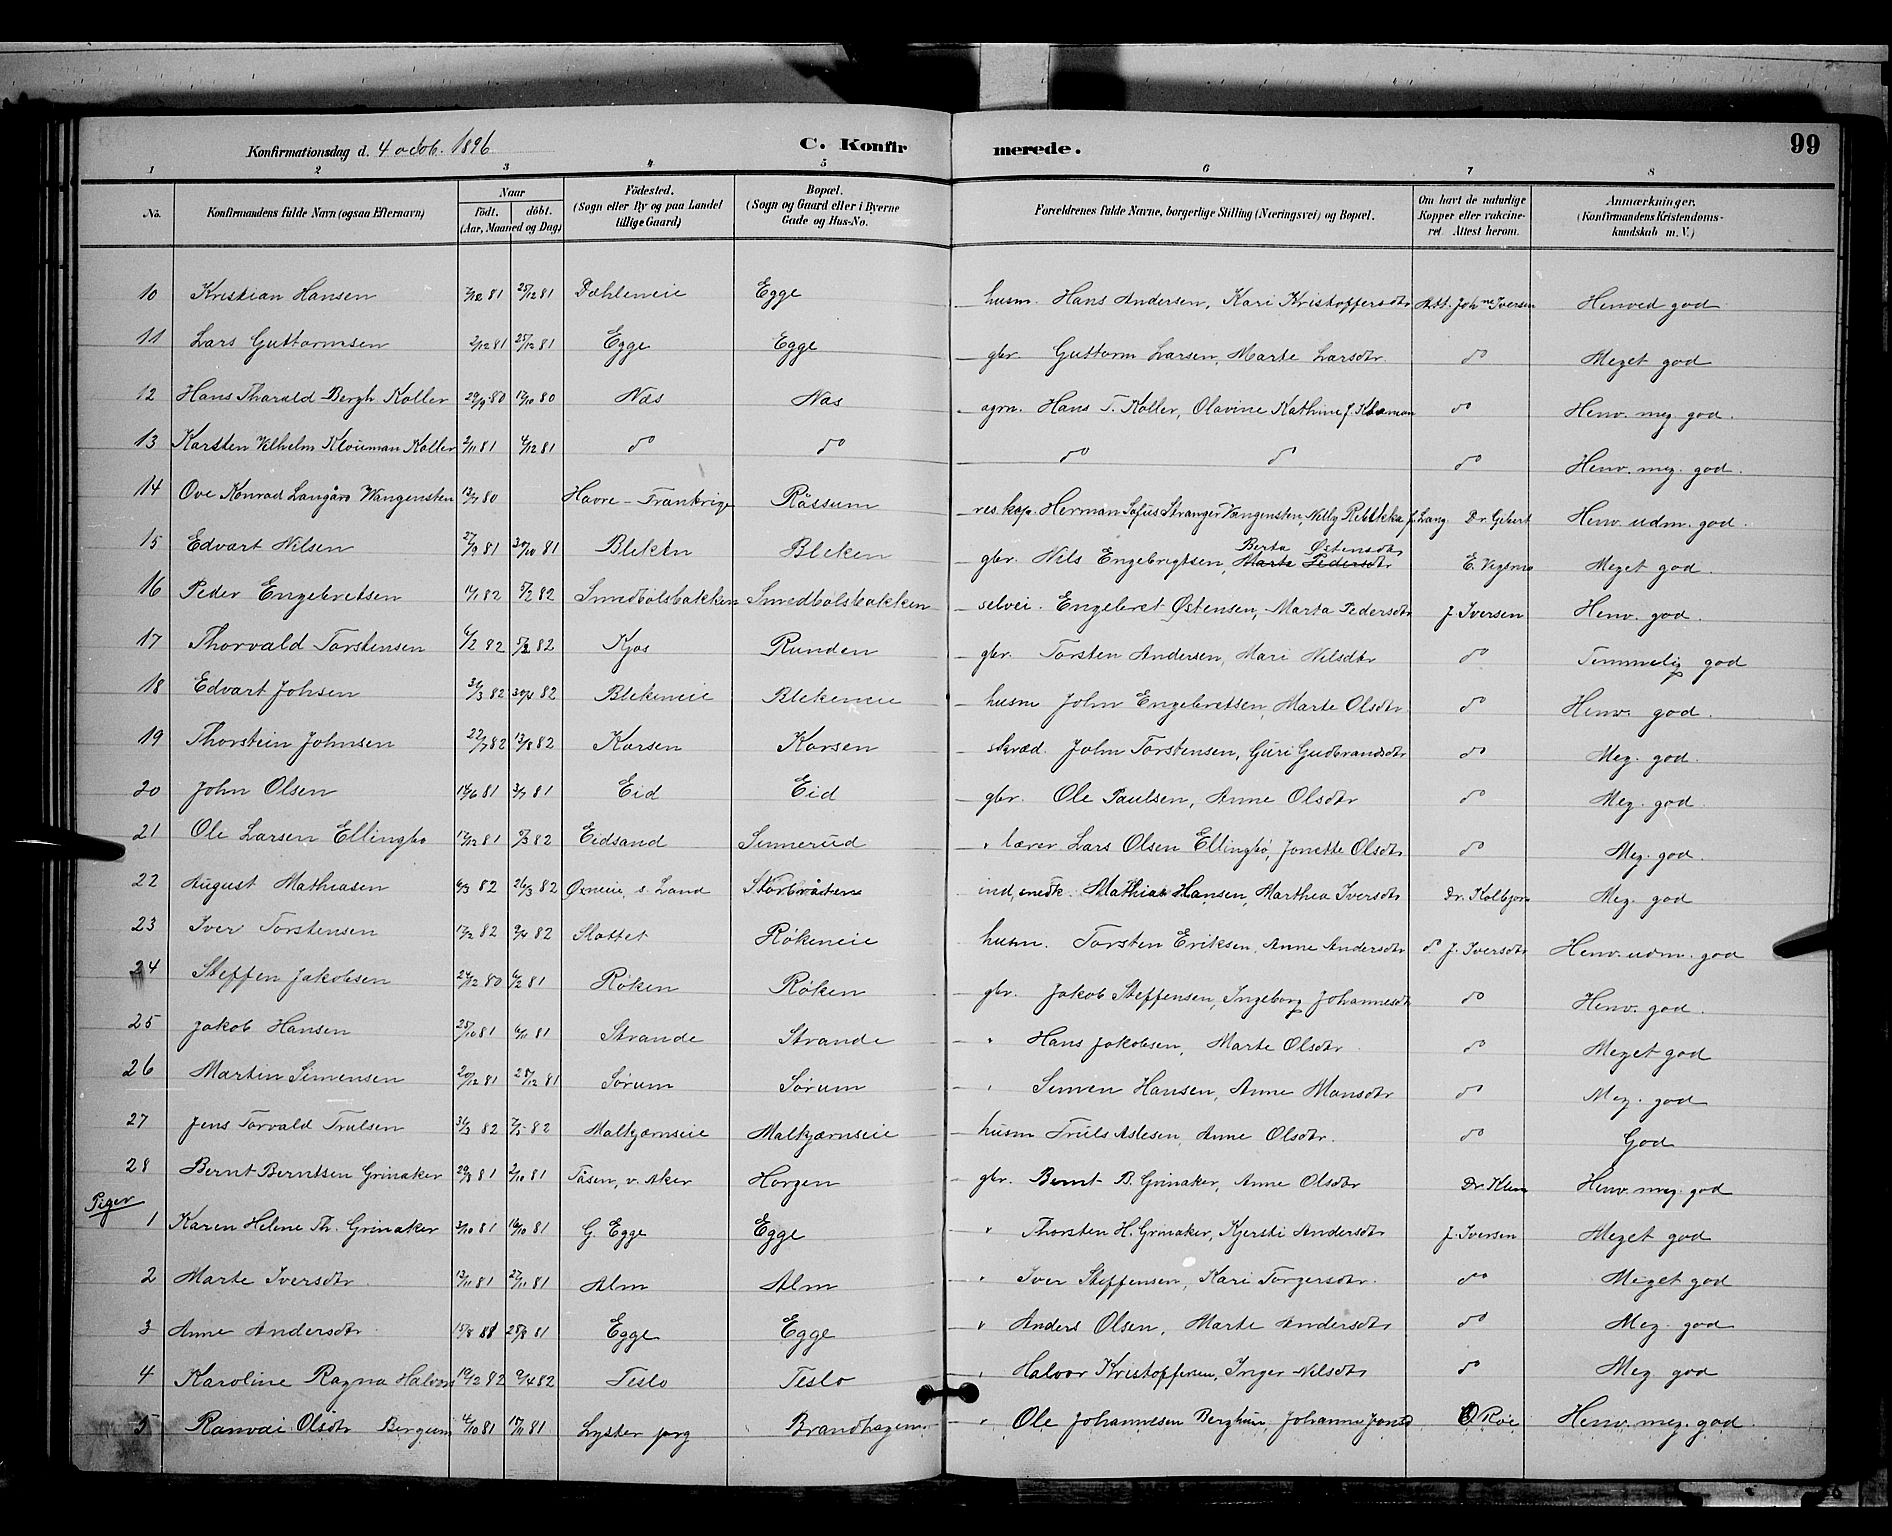 Konfirmationsdag d. 4 octob. 1896 C. Konfirmerede. 99
1 2 3 4 5 6 7 8
No. Konfirmandens fulde Navn (ogsaa Efternavn) Naar födt. döbt. (Aar, Maaned og Dag) Födested. (Sogn eller By og paa Landet tillige Gaard) Bopæl. (Sogn og Gaard eller i Byerne Gade og Hus-No. Forældrenes fulde Navne, borgerlige Stilling (Næringsvei) og Bopæl. Om havt de naturlige Kopper eller vakcineret. Attest herom. Anmærkninger. (Konfirmandens Kristendomskundskab m. V.)
10 Kristian Hansen 81 25/12 81 Dæhleneie Egge husm. Hans Andersen, Kari Kristoffersdtr Att. Johne Iversen Henved god
11 Lars Guttormsen 2/12 81 25/12 81 Egge Egge gbr. Guttorm Larsen, Marte Larsdtr. do Meget god
12 Hans Tharald Bergh Koller 29/9 80 17/10 80 Næs Næs agrn. Hans T. Koller, Olavine Kathine f. Klouman do Henv. meg god.
13 Karsten Vilhelm Klouman Koller 2/11 81 4/12 81 do do do do do Henv. meg. god.
14 Ove Konrad Langård Wangensten 13/7 80 Havre - Frankrige Råssum res. kap. Herman Sofus Stranger Vangensten, Nelly Rebekka f. Lang Dr. Gebart Henv. udm. god.
15 Edvart Nilsen 27/9 81 30/10 81 Bleken Bleken gbr. Nils Engebrigtsen, Marte Pedersdtr Berta Østensdtr E. Vigerus Meget god.
16 Peder Engebretsen 11/1 82 5/2 82 Smedbølsbakken Smedbølsbakken selvei. Engebret Østensen, Marta Pedersdtr J. Iversen Henv. god.
17 Thorvald Torstensen 6/2 82 5/3 82 Kjos Runden gbr. Torsten Andersen, Mari Nilsdtr do Temmelig god
18 Edvart Johsen 30/3 82 30/4 82 Blekeneie Blekeneie husm John Engebretsen, Marte Olsdtr do Henv. god.
19 Thorstein Johnsen 22/7 82 13/8 82 Korsen Korsen skræd. John Torstensen, Guri Gudbrandsdtr do Meg. god.
20 John Olsen 14/6 81 3/7 81 Eid Eid gbr. Ole Paulsen, Anne Olsdtr do Meg. god.
21 Ole Larsen Ellingbo 17/12 81 5/3 82 Eidsand Sinnerud " lærer Lars Olsen Ellingbø, Jonette Olsdtr do Meg. god.
22 August Mathiasen 6/3 82 26/3 82 Oxneie, s. Land Storbråten ind, snedk. Mathias Hansen, Marthea Iversdtr Dr. Kolbjorn Meg. god
23 Iver Torstensen 17/2 82 9/4 82 Slottet Røkeneie husm. Torsten Eriksen, Anne Andersdtr do J. Iversdtr Henv. udm. god
24 Steffen Jakobsen 24/12 80 6/2 81 Røken Røken gbr. Jakob Steffensen, Ingeborg Johannesdtr do Henv. god.
25 Jakob Hansen 25/10 81 6/11 81 Strande Strande " Hans Jakobsen, Marte Olsdtr do Meget god
26 Martin Simensen 20/12 81 25/12 81 Sørum Sørum " Simen Hansen, Anne Hansdtr do Meg. god
27 Jens Torvald Trulsen 31/3 82 7/5 82 Malkjærnseie Malkjærnseie husm Truls Aslesen, Anne Olsdtr. do God
28 Bernt Berntsen Grinaker 29/8 81 2/10 81 Tåsen, v. Aker Horgen gbr. Bernt B. Grinaker, Anne Olsdtr Dr. Klem Henv. meg. god
Piger
1 Karen Helene Th. Grinaker 3/10 81 16/10 81 G. Egge Egge " Thorsten H. Grinaker, Kjersti Andersdtr J. Iversen Meget god
2 Marte Iversdtr. 13/11 81 27/11 81 Alm Alm " Iver Steffensen, Kari Torgersdtr. do Meget god
3 Anne Andersdtr. 15/8 81 28/8 81 Egge Egge " Anders Olsen, Marte Andersdtr do Meg. god
4 Karoline Ragna Halvors 19/2 82 9/4 82 Teslo Teslo " Halvor Kristoffersen, Inger Nilsdtr do Meg. god
5 Ranvei Olsdtr Bergum 4/10 81 81 Lyster prg Brandhagen " Ole Johannesen Berghum, Johanne Jonsd O Roe Henv. meg. god